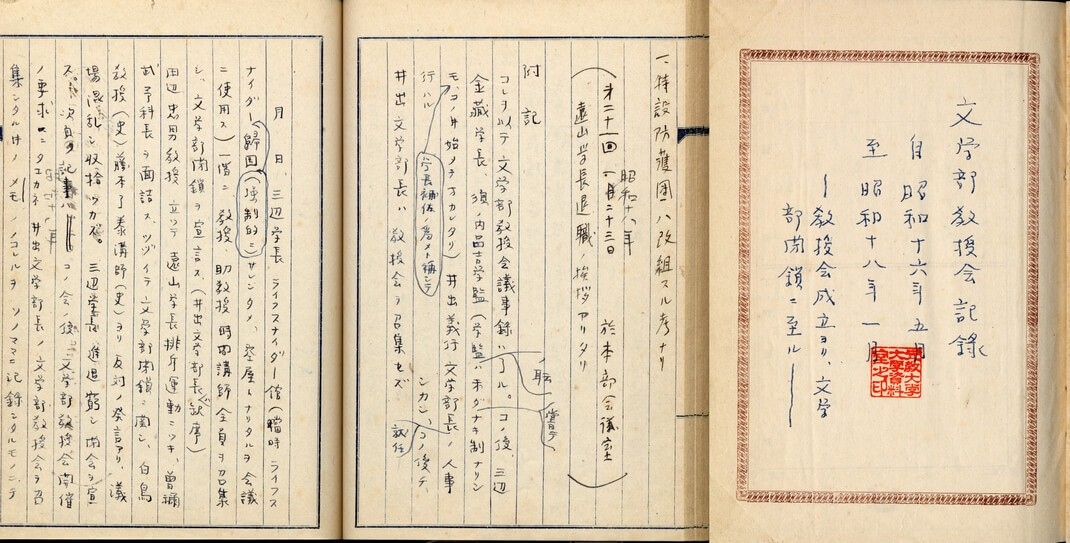 文学部教授会記録
自 昭和十六年五月
至 昭和十八年一月
― 教授会成立ヨリ、文学
部閉鎖ニ至ル ―
立教大学
大学資料
室之印
一、特設防護団ハ改組スル考ナリ
昭和十八年
(第二十一回 一月二十三日 於本部会議室
遠山学長退職ノ挨拶アリタリ)
附記
コレヲ以テ文学部教授会議事録ハ了ル。コノ後、三辺
金藏学長、須ノ内品吉学監(学監ハ末ダナキ制ナリシ
モ、コノ時始メテオカレタリ) 井出義行文学部長ノ人事
行ハル
学長補佐ノ為メト称シテ
シカシ、コノ後チ、
井出文学部長ハ教授会ヲ召集セズ
就任
月 日、三辺学長 ライフスナイダー館(当時ライフス
ナイダー帰国(強制的ニ)サレシタメ、空屋トナリタルヲ会議
ニ使用ス) 一階ニ教授、助教授 時間講師全員ヲ召集
シ、文学部閉鎖ヲ宣言ス。(井出文学部長ハ欠席)
田辺忠男教授 立ツテ 遠山学長排斥運動ニツキ、曽禰
武予科長ヲ面詰ス、ツヅイテ文学部閉鎖ニ関シ、白鳥
教授(史) 藤本了泰講師(史) ヨリ 反対ノ発言アリ、議
場混乱シ収拾ツカズ。三辺学長進退窮シ閉会ヲ宣
ス 次頁ノ記事ハ コノ会ノ後 文学部教授会開催
ノ要求ニタエカネ 井出文学部長ノ文学部教授会ヲ召
集シタル時ノメモノコレルヲ ソノママニ記録シタルモノニテ